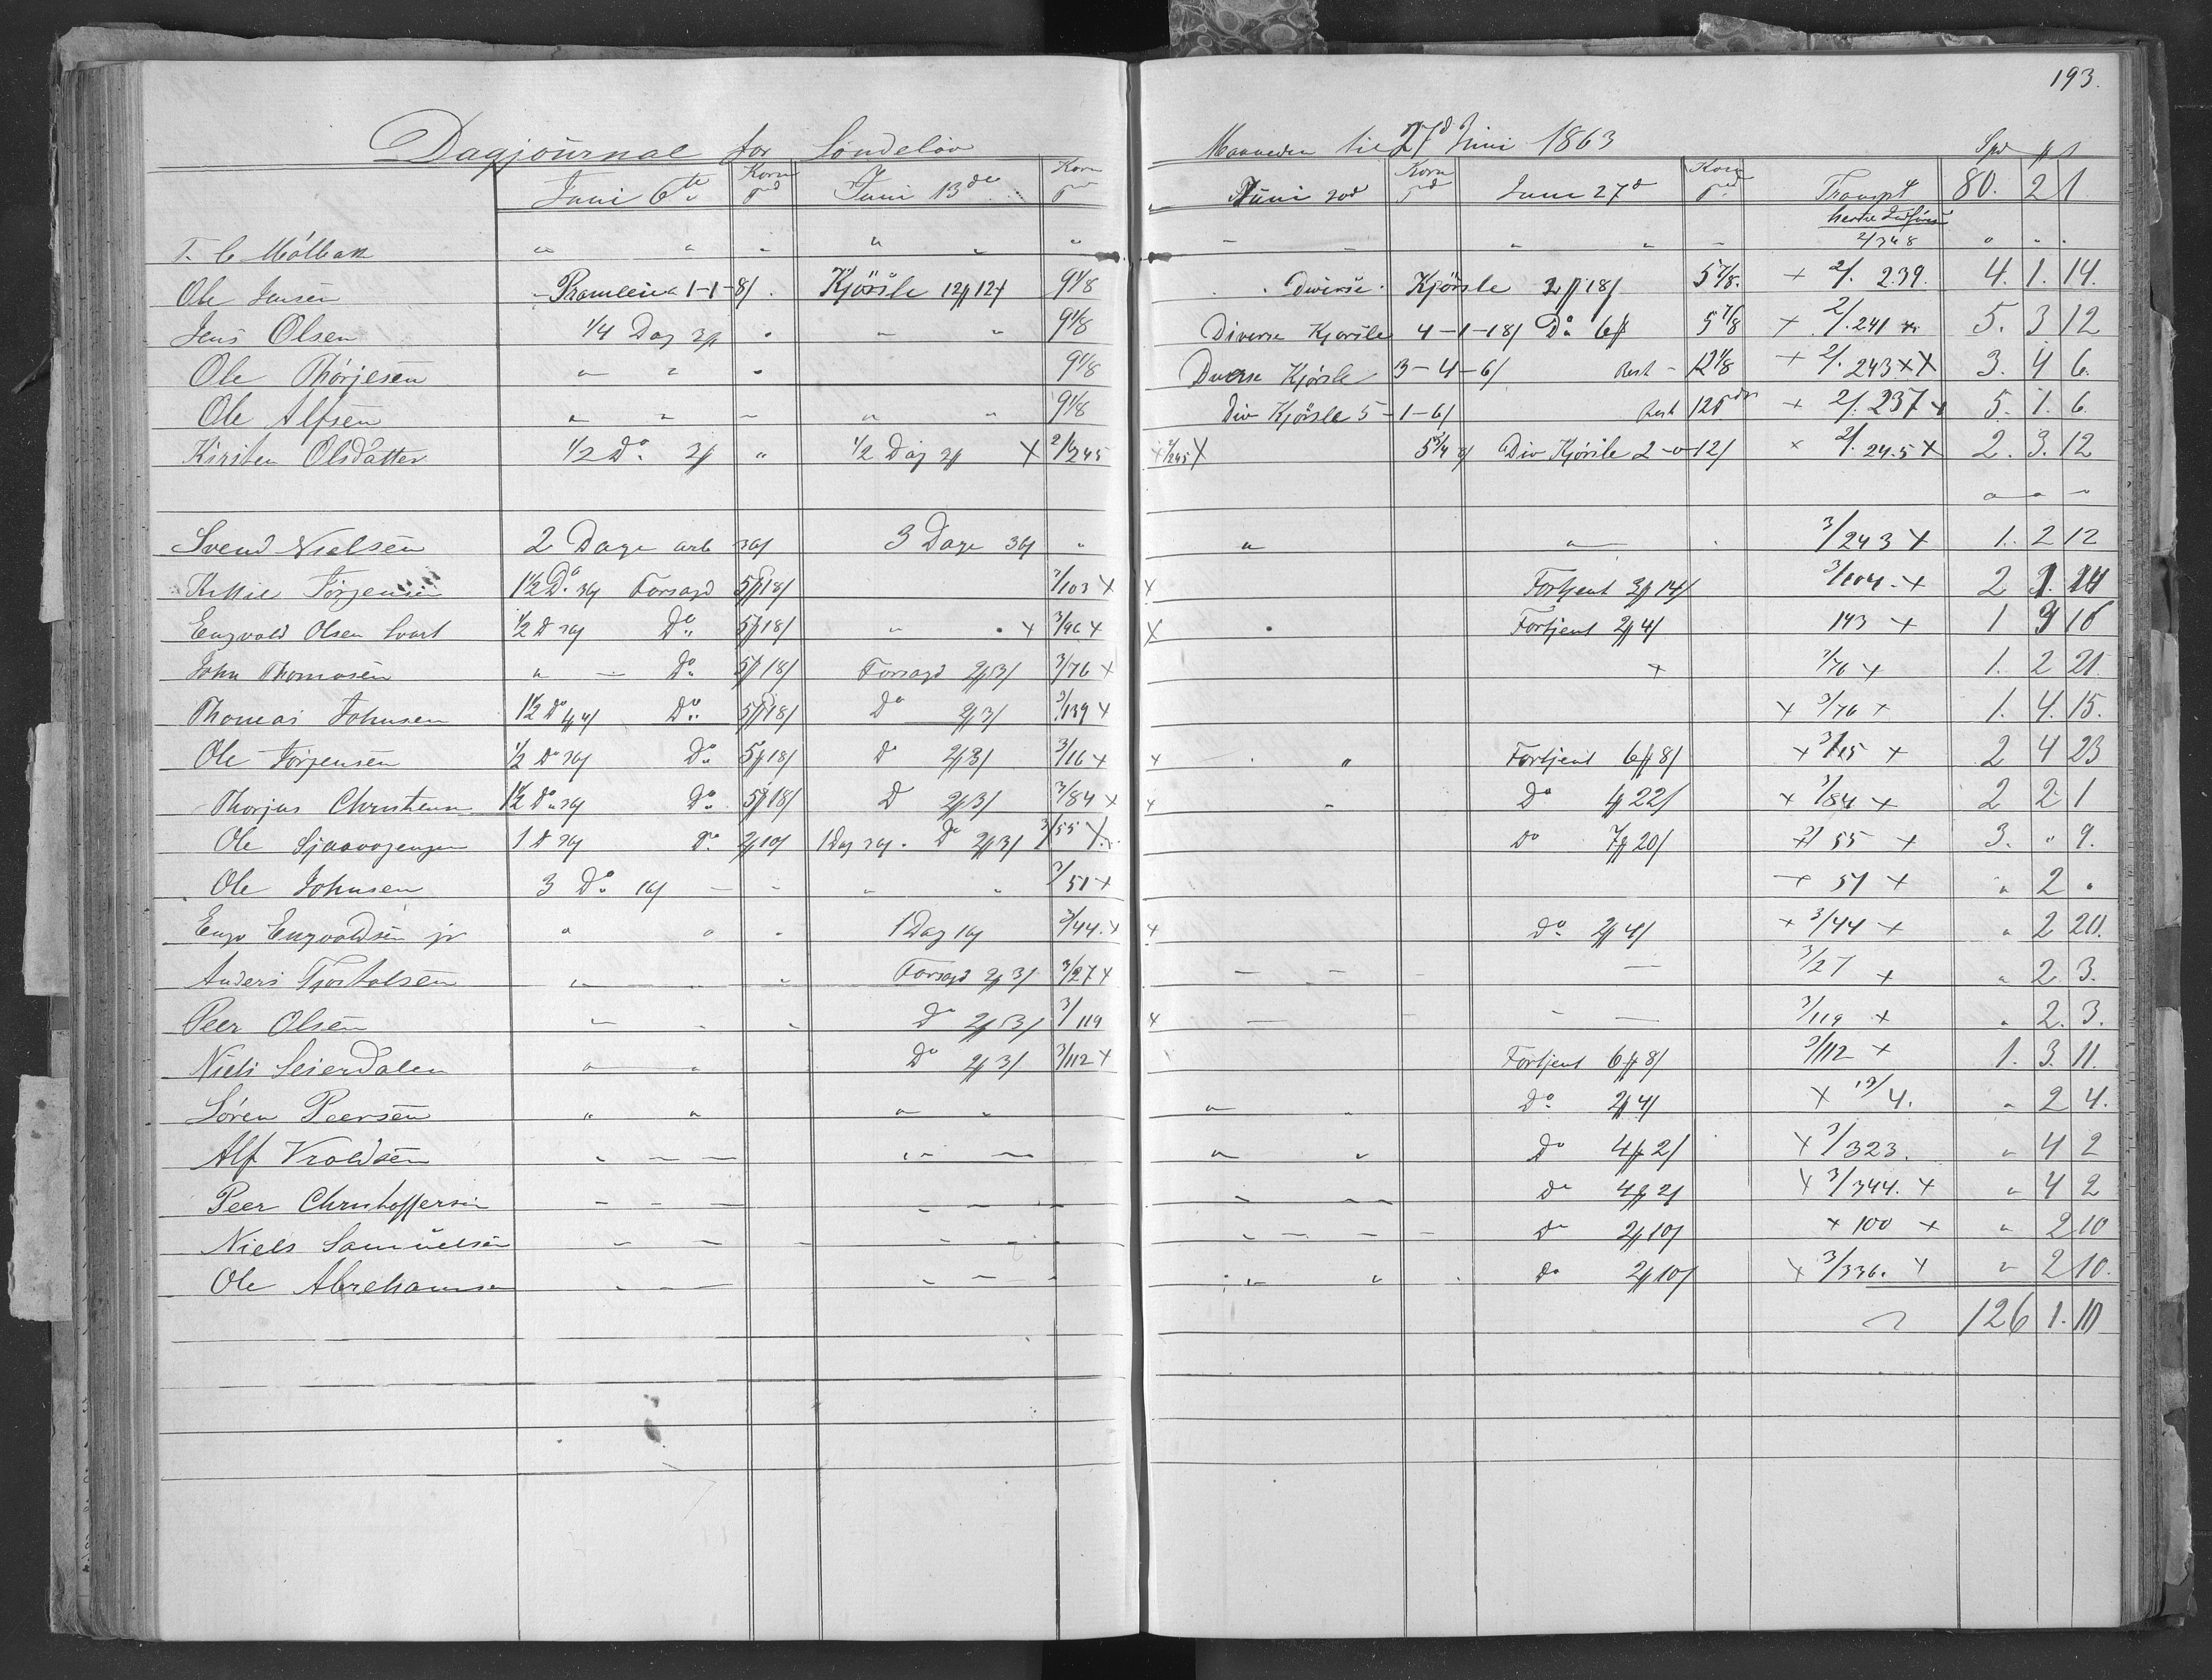 193.
Dagjournal for Søndeløv Maaneden til 27d Juni 1863
Juni 6te Korn Juni 13de Korn Juni 20d Korn Juni 27d Korn Transpt 80. 2 1
T. C. Mölbak " " " " " " 2/348 " " "
Ole Jensen Pramleie 1-1-8/ Kjörsle 12/ 9 1/8 Diverse Kjörsle 2 18/ 5 7/8. + 2/. 239. 4. 1. 14.
Jens Olsen 1/4 Dag " " 9 1/8 Diverse Kjörsle 4-1-18/ Do 5 7/8 + 2/. 241 5. 3 12
Ole Thorjesen " " " 9 1/8 Diverse Kjörsle 3-4-6/ Rest - 12 1/8 + 2/. 243 x X 3. 4 6.
Ole Alfsen " " " " " 9 1/8 Div Kjörsle 5-1-6/ Rest 12 + 2/. 237 x 5. 1. 6.
Kirsten Olsdatter 1/2 Do " 1/2 Dag X 2/245 2/245 X 5 3/4 Div Kjörsle 2-0-12/ x 2/. 245 X 2. 3. 12
" " "
Svend Nielsen 2 Dage arb 3 Dage " " " 3/243 X 1. 2 12
Jörgensen 1 1/2 Do Forsagd 5 18/ 3/103 x x Fortjent 3 14/ 3/104. x 2
Engvold Olsen Svart 1/2 D Do 5 18/ " x 3/96 x X Fortjent 2 4/ 143 x 1 16
John Thomasen " - Do 5 18/ Forsagd 2 3/ 3/76 x x 3/76 x 1. 2 21.
Thomas Johnsen 1 1/2 Do Do 5 18/ Do 2 3/ 3/139 x x 3/76 x 1. 4. 15.
Ole Jörgensen 1/2 Do Do 5 18/ D 2 3/ 3/16 x x " Fortjent 6 8/ x 3/15 x 2 4 23
Thorjus Christensen 1 1/2 Do Do 5 18/ D 2 3/ 3/84 x x " Do 4 22/ x 3/84 x 2 2 1
Ole 1 D Do 2 10/ 1 Dag Do 2 3/ 3/55 X Do 7 20/ 55 x 3. " 9.
Ole Johnsen 3 Do " " 3/51 x 51 x " 2 "
Engv Engvoldsen jr " " " 1 Dag 3/44. x x Do 2 4/ x 3/44 x " 2 20.
Anders Tjostolsen " " Forsagd 2 3/ 3/27 x 3/27 x " 2. 3.
Peer Olsen " " " Do 2 3/ 3/119 x 3/119 x " 2. 3.
Niels Seierdalen " " Do 2 3/ 3/112 x Fortjent 6 8/ 3/112 x 1. 3. 11.
Sören Peersen " " " " " " Do 2 4/ X 13/4. " 2 4.
Alf Vroldsen " " " " " " Do 4 2/ x 3/323. " 4 2
Peer Christoffersen " " " " " " Do 4 2/ x 3/344. x " 4 2
Niels Samuelsen " " " " " " Do 2 10/ x 100 x " 2 10
Ole Abrehamsen " " " " " " Do 2 10/ x 3/336. x " 2 10.
126 1. 10